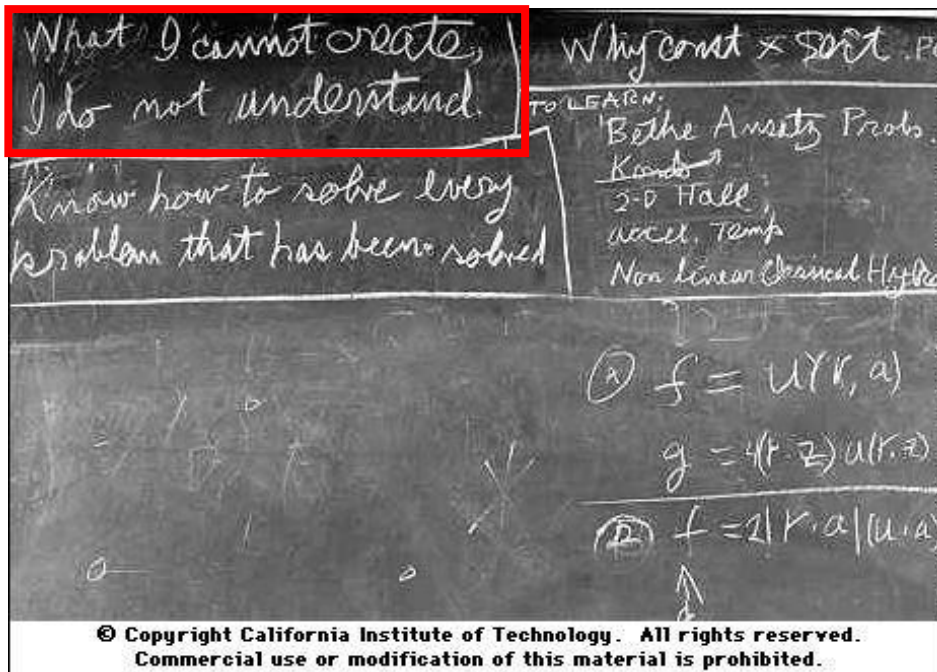 What I cannot create,
I do not understand.
Know how to solve every
problem that has been solved
Why const × sort .
TO LEARN:
Bethe Ansatz Probs.
Kondo
2-D Hall
accel. Temp
Non linear Classical Hydro
f = u(r, a)
g = 4(r·z) u(r,z)
f = 2|r·a|(u·a)
© Copyright California Institute of Technology. All rights reserved.
Commercial use or modification of this material is prohibited.